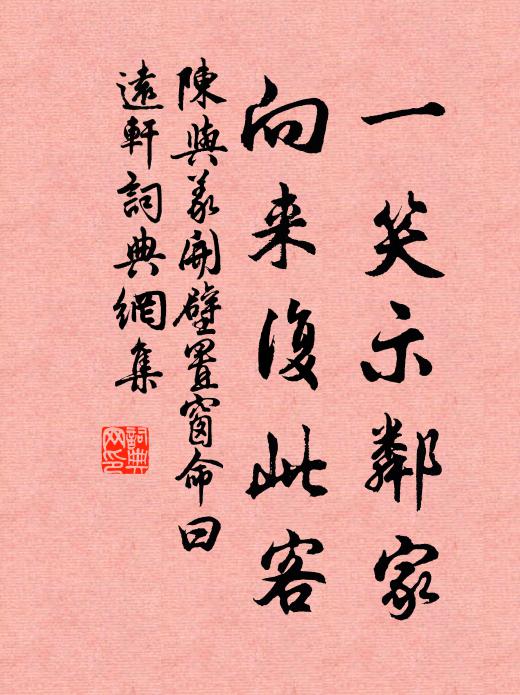 一笑示鄰家
向来復此客
陳與義開壁置窗命曰
遠軒詞典網集
詞典网印